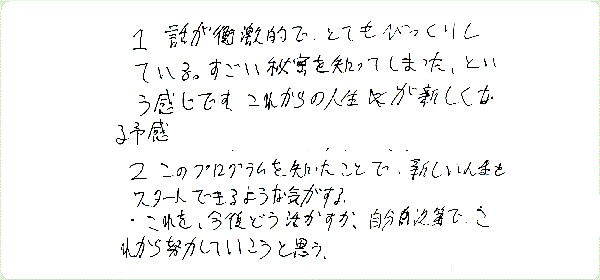 1 話が衝激的で、とてもびっくりし
ている。すごい秘密を知ってしまった、とい
う感じです これからの人生が新しくな
る予感
2 このプログラムを知ったことで、新しい人生を
スタートできるような気がする。
・これを、今後どう活かすか、自分自身次第で、こ
れから努力していこうと思う。